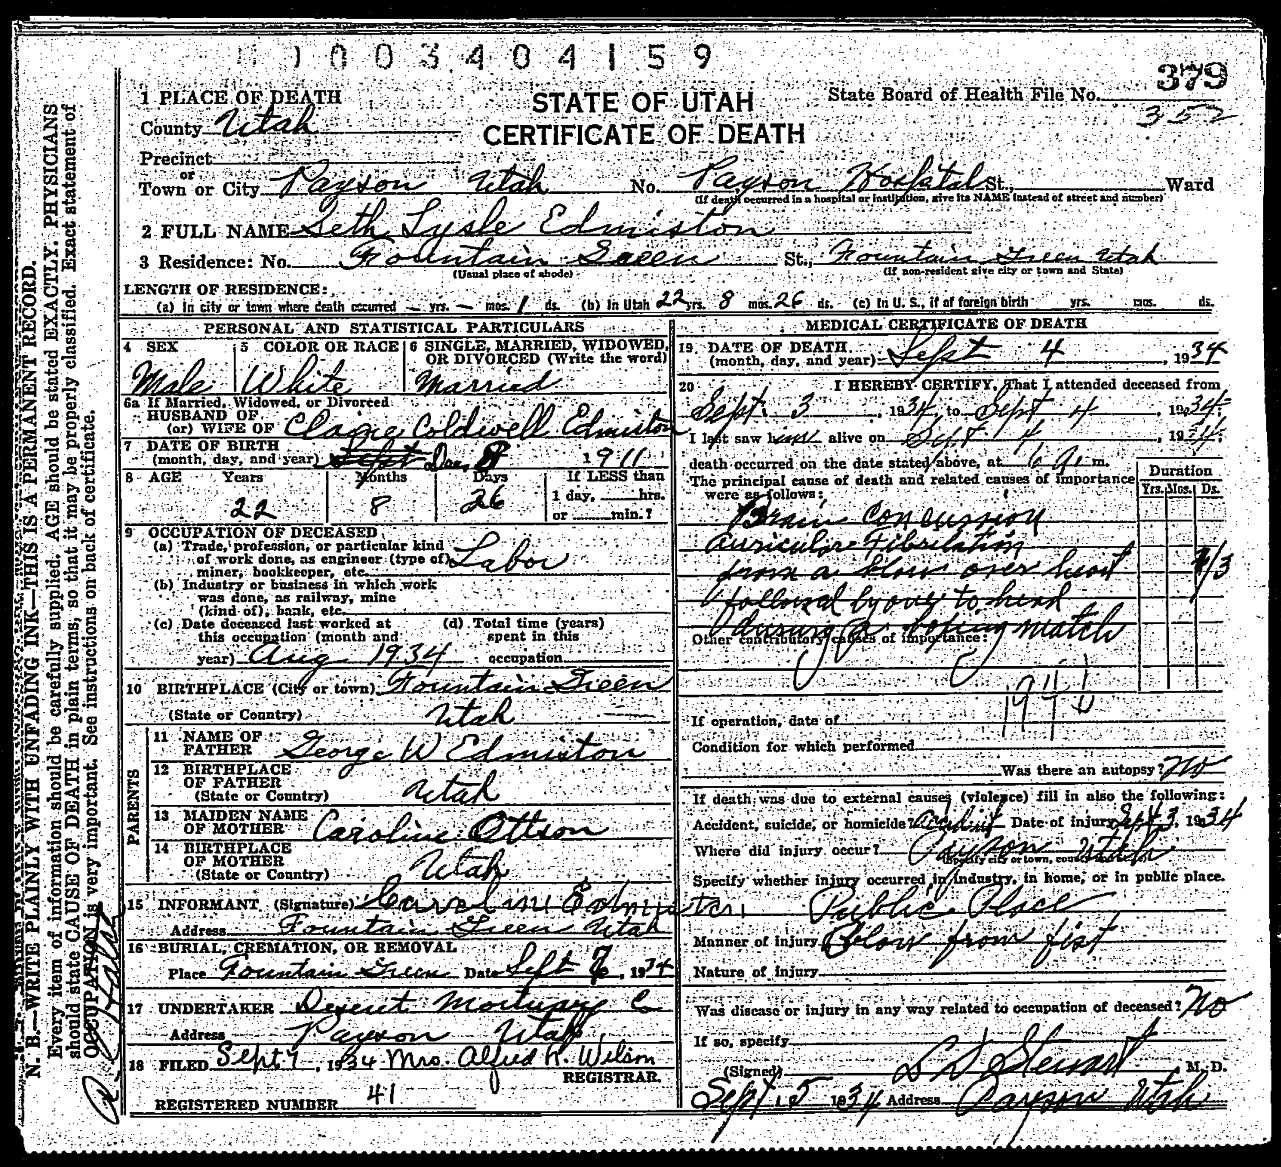 1003404159
379
1 PLACE OF DEATH
STATE OF UTAH
State Board of Health File No.
352
County Utah
CERTIFICATE OF DEATH
Precinct
or
Town or City Payson Utah No. Payson Hospital St., Ward
(If death occurred in a hospital or institution, give its NAME instead of street and number)
2 FULL NAME Seth Lysle Edmiston
3 Residence: No. Fountain Green St., Fountain Green Utah
(Usual place of abode) (If non-resident give city or town and State)
LENGTH OF RESIDENCE:
(a) In city or town where death occurred — yrs. — mos. 1 ds. (b) In Utah 22 yrs. 8 mos. 26 ds. (c) In U. S., if of foreign birth yrs. mos. ds.
PERSONAL AND STATISTICAL PARTICULARS
4 SEX 5 COLOR OR RACE 6 SINGLE, MARRIED, WIDOWED,
OR DIVORCED (Write the word)
Male White Married
6a If Married, Widowed, or Divorced
HUSBAND OF
(or) WIFE OF Claire Coldwell Edmiston
7 DATE OF BIRTH
(month, day, and year) Sept Dec 8 1911
8 AGE Years Months Days If LESS than
1 day, hrs.
or min.?
22 8 26
9 OCCUPATION OF DECEASED
(a) Trade, profession, or particular kind
of work done, as engineer (type of) Labor
miner, bookkeeper, etc.
(b) Industry or business in which work
was done, as railway, mine
(kind of), bank, etc.
(c) Date deceased last worked at (d) Total time (years)
this occupation (month and spent in this
year) Aug 1934 occupation
10 BIRTHPLACE (City or town) Fountain Green
(State or Country) Utah
PARENTS
11 NAME OF
FATHER George W Edmiston
12 BIRTHPLACE
OF FATHER
(State or Country) Utah
13 MAIDEN NAME
OF MOTHER Caroline Ottson
14 BIRTHPLACE
OF MOTHER
(State or Country) Utah
15 INFORMANT (Signature) Caroline Edmiston
Address Fountain Green Utah
16 BURIAL, CREMATION, OR REMOVAL
Place Fountain Green Date Sept 7, 1934
17 UNDERTAKER Deseret Mortuary C
Address Payson Utah
18 FILED Sept 7, 1934 Mrs. Alfred R. Wilson
REGISTRAR.
REGISTERED NUMBER 41
MEDICAL CERTIFICATE OF DEATH
19 DATE OF DEATH
(month, day, and year) Sept 4, 1934
20 I HEREBY CERTIFY, That I attended deceased from
Sept. 3, 1934, to Sept 4, 1934.
I last saw him alive on Sept 4, 1934.
death occurred on the date stated above, at 6 a. m.
The principal cause of death and related causes of importance
were as follows:
Duration
Yrs. Mos. Ds.
Brain concussion
Auricular Fibrilation
from a blow over heart
followed by one to head
during a boxing match
Other contributory causes of importance:
If operation, date of
Condition for which performed
Was there an autopsy? No
If death was due to external causes (violence) fill in also the following:
Accident, suicide, or homicide? Accident Date of injury Sept 3, 1934
Where did injury occur? Payson Utah
(Specify city or town, county
Specify whether injury occurred in industry, in home, or in public place.
Public Place
Manner of injury Blow from fist
Nature of injury
Was disease or injury in any way related to occupation of deceased? No
If so, specify
(Signed) L D Stewart, M. D.
Sept. 5 1934 Address Payson Utah
N. B.—WRITE PLAINLY WITH UNFADING INK—THIS IS A PERMANENT RECORD.
Every item of information should be carefully supplied. AGE should be stated EXACTLY. PHYSICIANS
should state CAUSE OF DEATH in plain terms, so that it may be properly classified. Exact statement of
OCCUPATION is very important. See instructions on back of certificate.